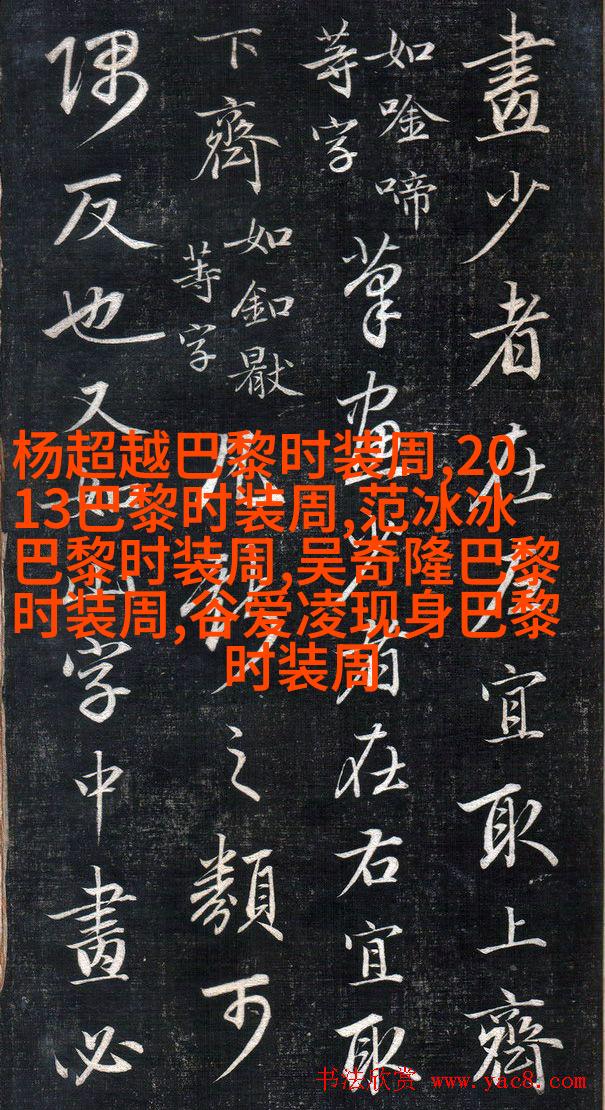 畫少者在左宜取上齊
如唫啼
等字
筆畫少者在右宜取
下齊
如釦
等字
凡之類可
隅反也又字中畫必
杨超越巴黎时装周,20
13巴黎时装周,范冰冰
巴黎时装周,吴奇隆巴黎
时装周,谷爱凌现身巴黎
时装周
书法欣赏 www.yac8.com